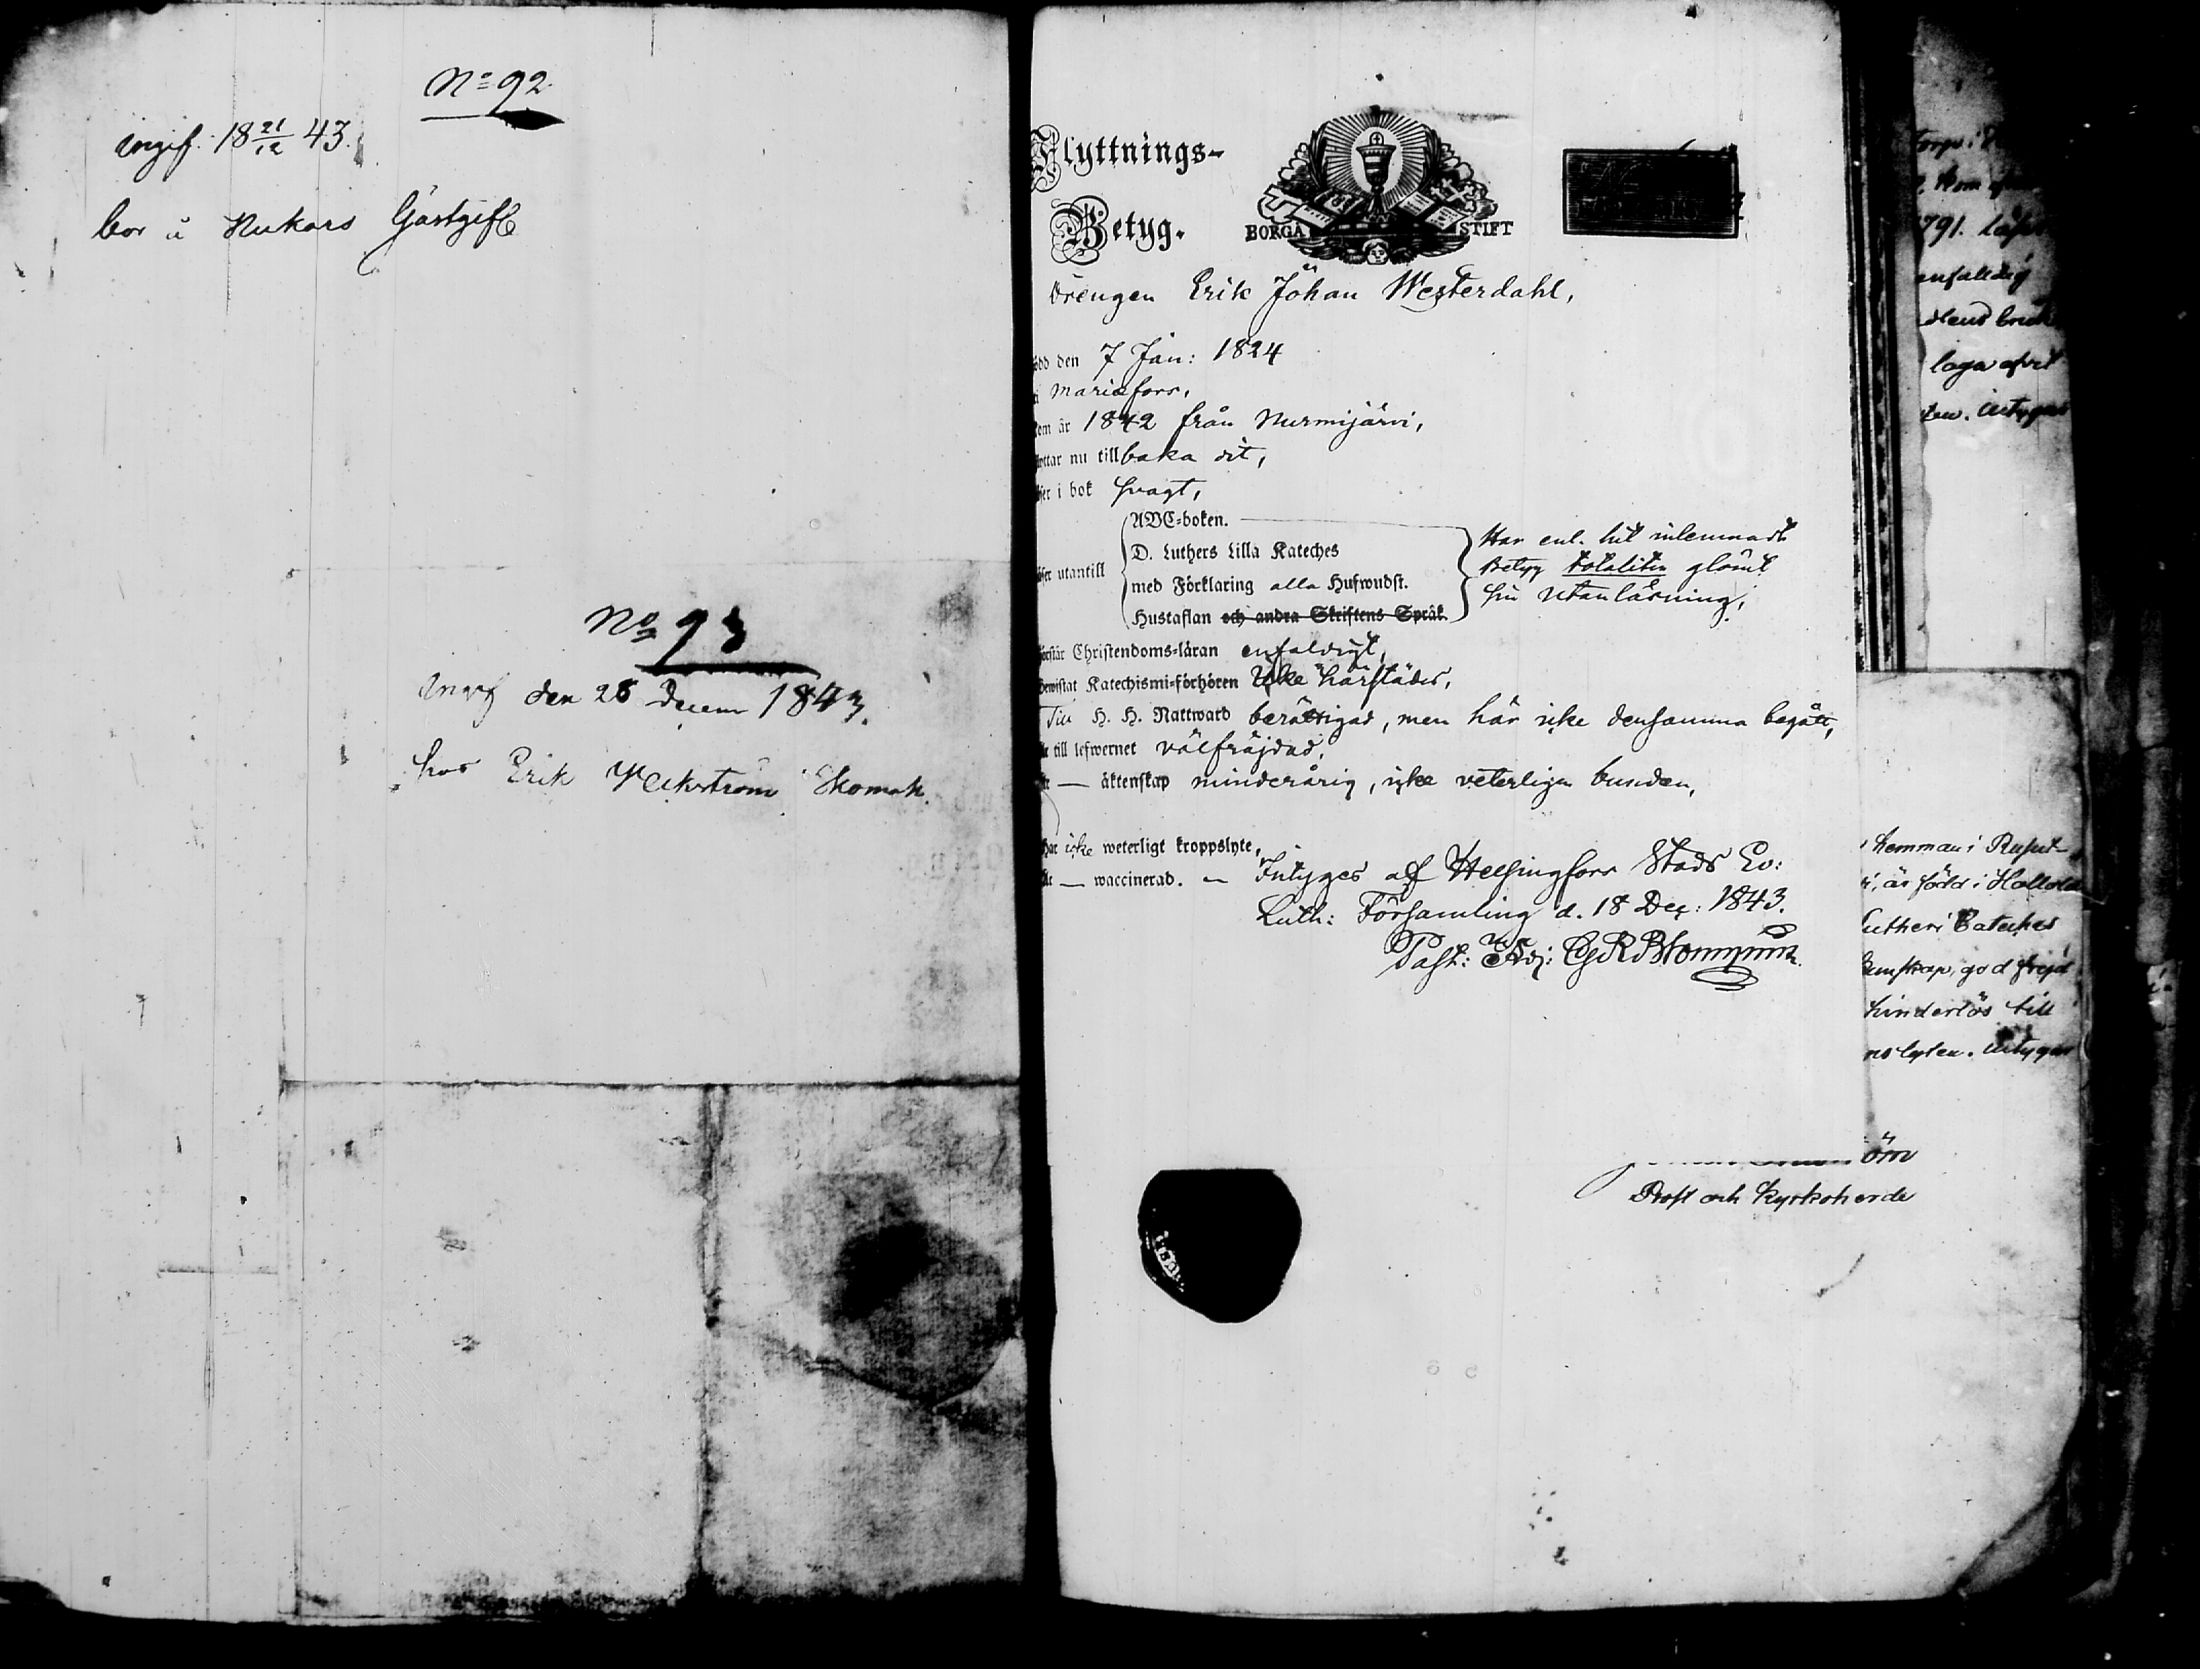 No 92
ingif. 18 21/12 43.
bor å Nukars Gästgif
No 93
den 28 Decem 1843.
hos Erik Weckström Skomak.
Flyttnings-
Betyg.
BORGÅ STIFT
Drengen Erik Johan Westerdahl,
född den 7 Jan: 1824
i Mariæfors,
kom år 1842 från Nurmijärvi,
flyttar nu tillbaka dit,
läser i bok svagt,
läser utantill
ABC-boken.
D. Luthers Lilla Kateches
med Förklaring alla Hufwudst.
Hustaflan och andra Skriftens Språk
Har enl. hit inlemnadt
Betyg totaliter glömt
sin utanläsning,
förstår Christendoms-läran enfaldigt,
bewistat Katechismi-förhören icke härstädes,
Till H. H. Nattward berättigad, men här icke densamma begått,
är till lefwernet välfräjdad,
är — äktenskap minderårig, icke veterligen bunden,
har icke weterligt kroppslyte,
är — waccinerad. — Intygas af Helsingfors Stads Ev:
Luth: Församling d. 18 Dec: 1843.
Past: Adj:
791.
enfaldig
laga
intygas
hemman i
är född i Hollola
Lutheri Cateches
kunskap, god frejd
hinderlös till
lyten. intygar
Prost och Kyrkoherde